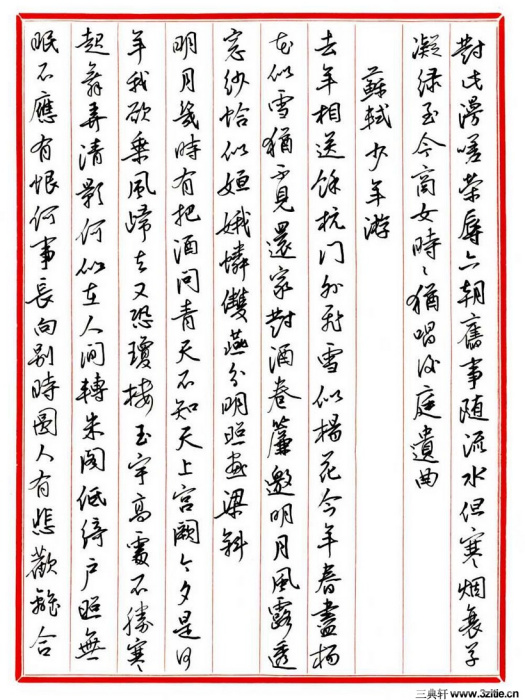 對此漫嗟榮辱六朝舊事隨流水但寒烟衰草
凝绿至今商女時々猶唱後庭遺曲
蘇軾少年游
去年相送餘杭门外飛雪似楊花今年春盡楊
花似雪猶不見還家對酒卷簾邀明月風露透
窓纱恰似姮娥憐雙燕分明照畫梁斜
明月幾時有把酒问青天不知天上宫闕今夕是何
年我欲乗風歸去又恐瓊楼玉宇高處不勝寒
起舞弄清影何似在人间轉朱阁低绮户照無
眠不應有恨何事長向别時圆人有悲歡離合
三典轩 www.3zitie.cn